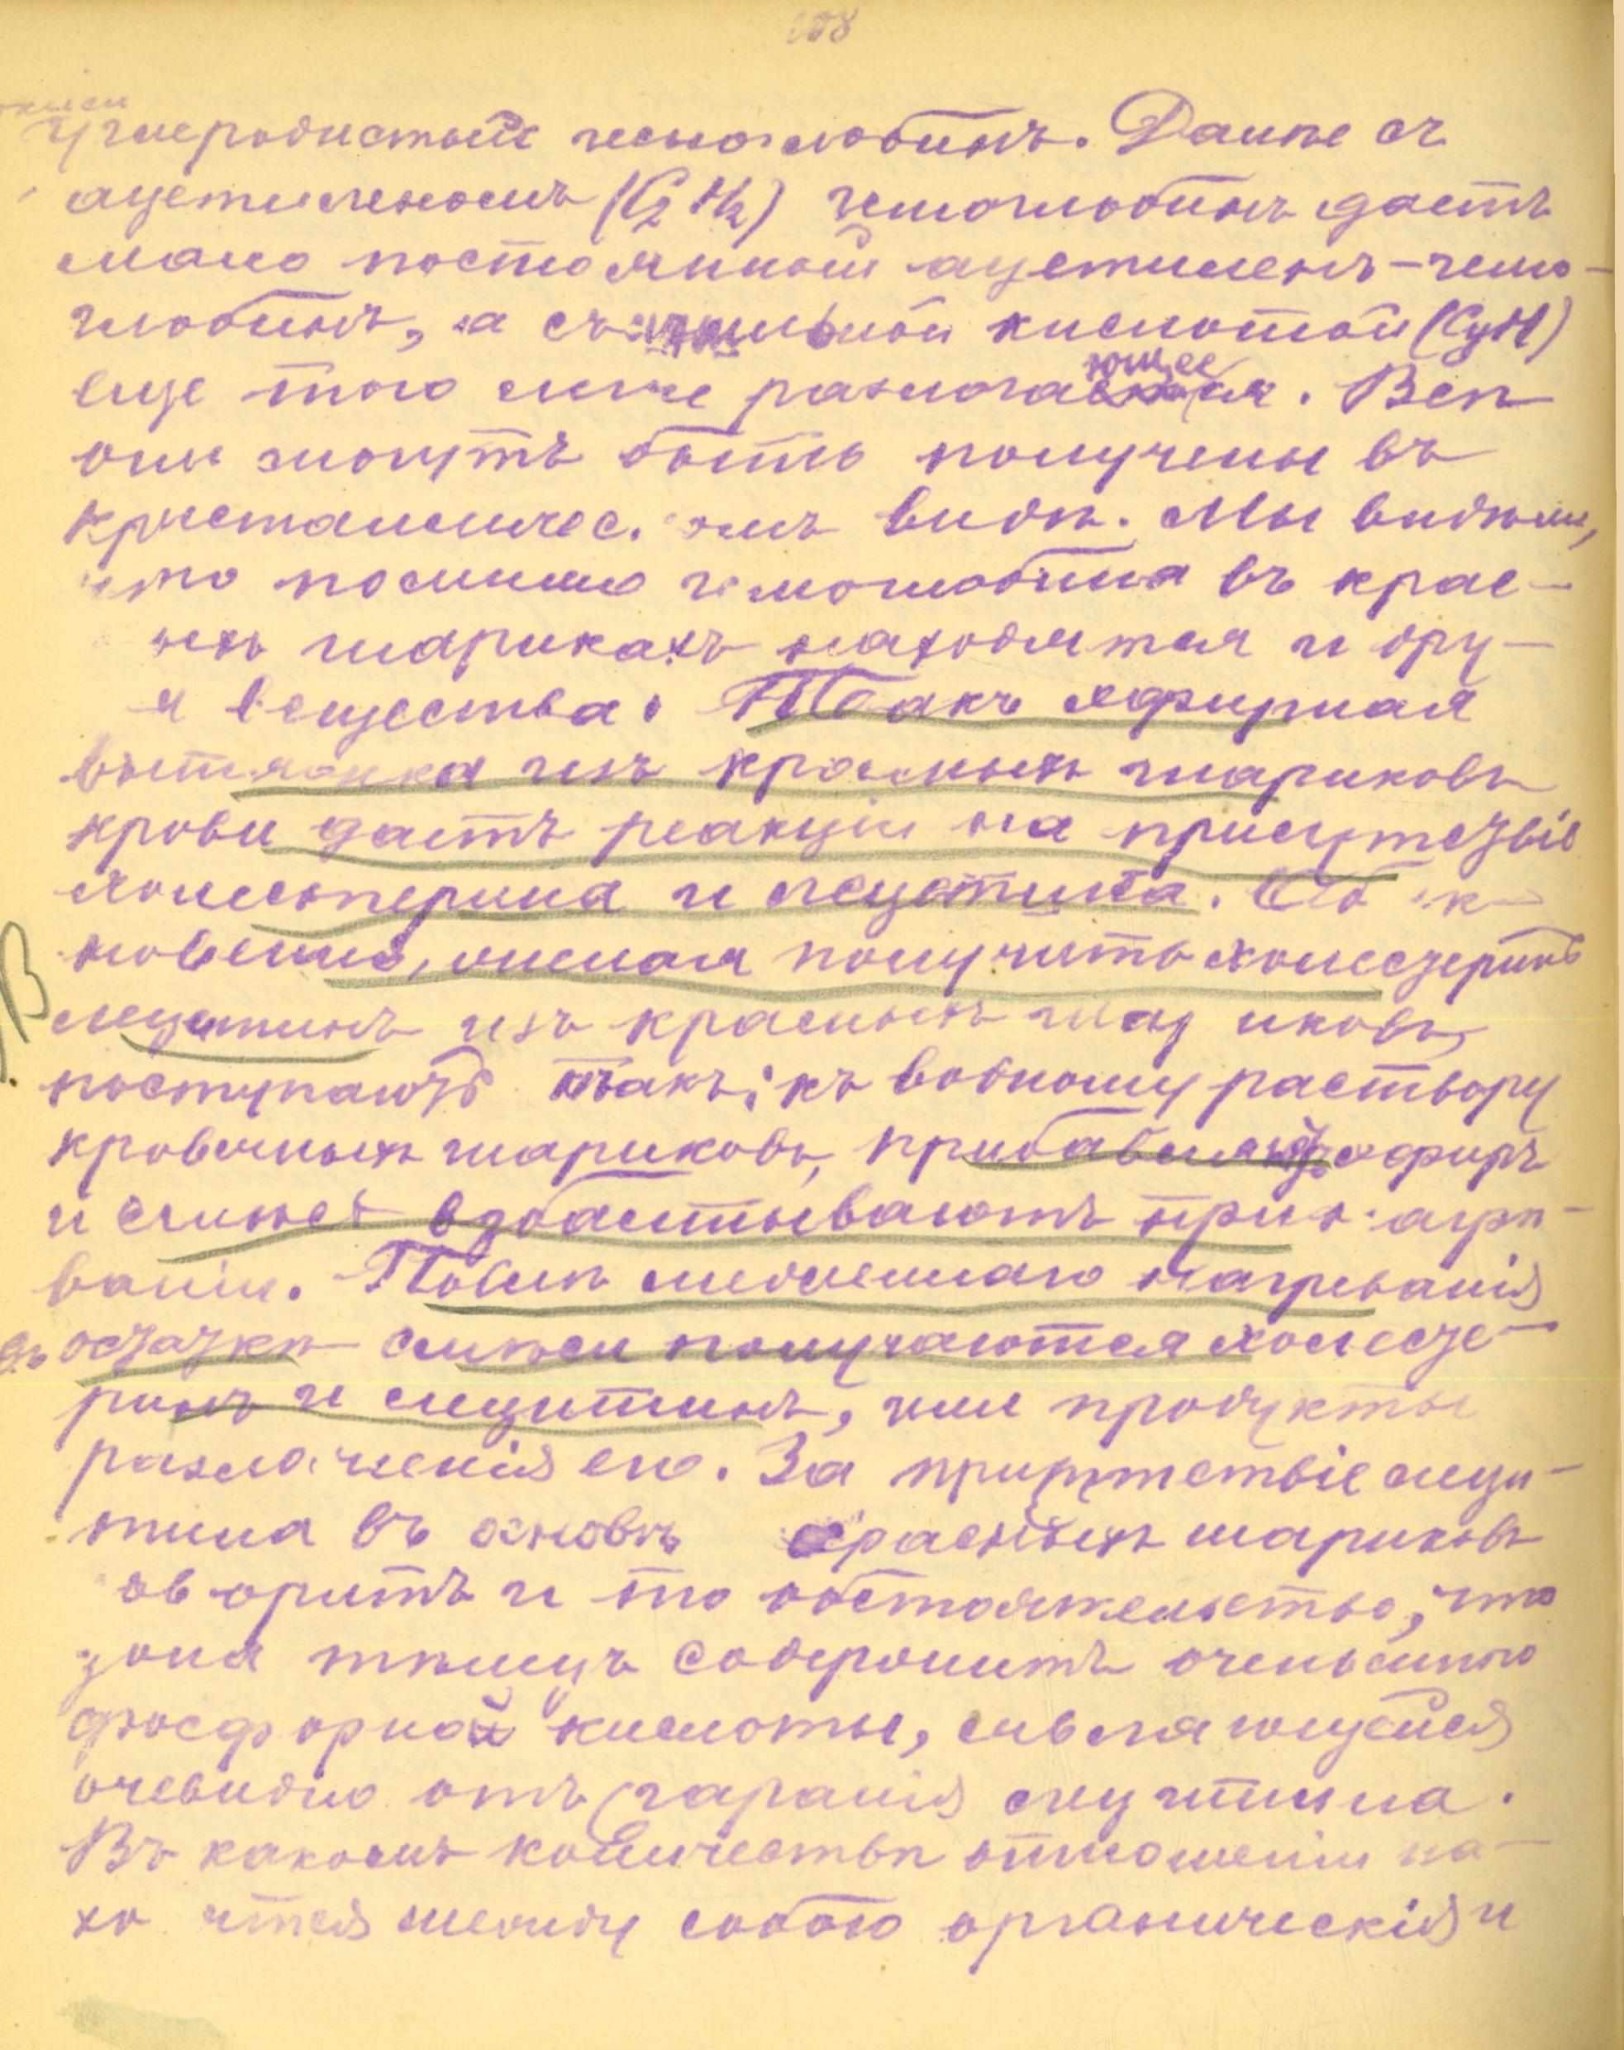 108
окиси
углеродистый гемоглобинъ. Далѣе съ
ацетиленомъ (C2H2) гемоглобинъ даетъ
мало постоянный ацетиленъ-гемо-
глобинъ, а съ синильной кислотой (CyH)
еще того легче разлагающееся. Всѣ
они могутъ быть получены въ
кристалличес. омъ видѣ. Мы видѣли,
что помимо гемоглобина въ крас-
ныхъ шарикахъ находятся и дру-
я вещества. Такъ эфирная
вытяжка изъ красныхъ шариковъ
крови даетъ реакцiи на присутствiе
холестерина и лецитина. Об к-
новенно, желая получить холестеринъ
лецитинъ изъ красныхъ шар иковъ,
поступаютъ такъ: къ водному раствору
кровяныхъ шариковъ, прибавляютъ эфиръ
и смѣсь взбалтываютъ при н агрѣ-
ванiи. Послѣ медленнаго нагреванiя
въ остаткѣ смѣси получаются холесте-
ринъ и лецитинъ, или продукты
разложенiя его. За присутствiе леци-
тина въ основѣ красныхъ шариковъ
ов оритъ и то обстоятельство, что
зола тѣлецъ содержитъ очень много
фосфорной кислоты, являющейся
очевидно отъ сгаранiя лецитина.
Въ какомъ количествѣ отношенiи на-
хо ятся между собою органическiя и